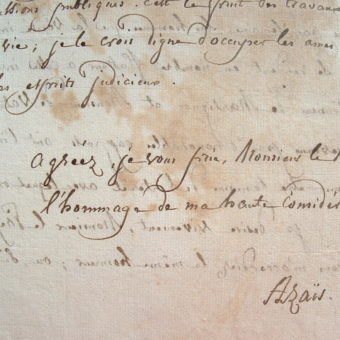 ssions publiques. C'est le fruit des travaux
vie ; je le crois digne d'occuper les ames
les esprits judicieux.
agréez, je vous prie, Monsieur le
l'hommage de ma haute considér
Azaïs.